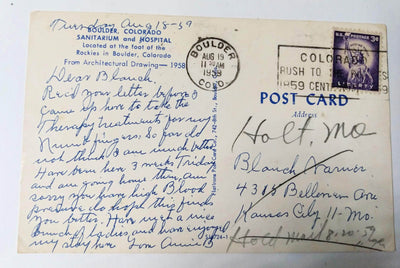 Tuesday Aug 18-59
BOULDER, COLORADO
SANITARIUM and HOSPITAL
Located at the foot of the
Rockies in Boulder, Colorado
From Architectural Drawing— 1958
Dear Blanch.
Recd your letter before I
came up here to take the
Therapy treatments for my
Numb fingers. So you did
not think I am much better
Have been here 3 weeks Friday
and am going home then, am
sorry you have high Blood
pressure do hope this finds
you better. Have met a nice
bunch of ladies and have enjoyed
my stay here Love Annie
BOULDER
AUG 19
11 AM
1959
COLO.
COLORADO
RUSH TO THE
1959 CENTENNIAL 1959
3¢
POST CARD
Address
Holt, Mo
Blanch Warner
4315 Bellevue Ave
Kansas City 11- Mo.
Hold Mail 8-20-59